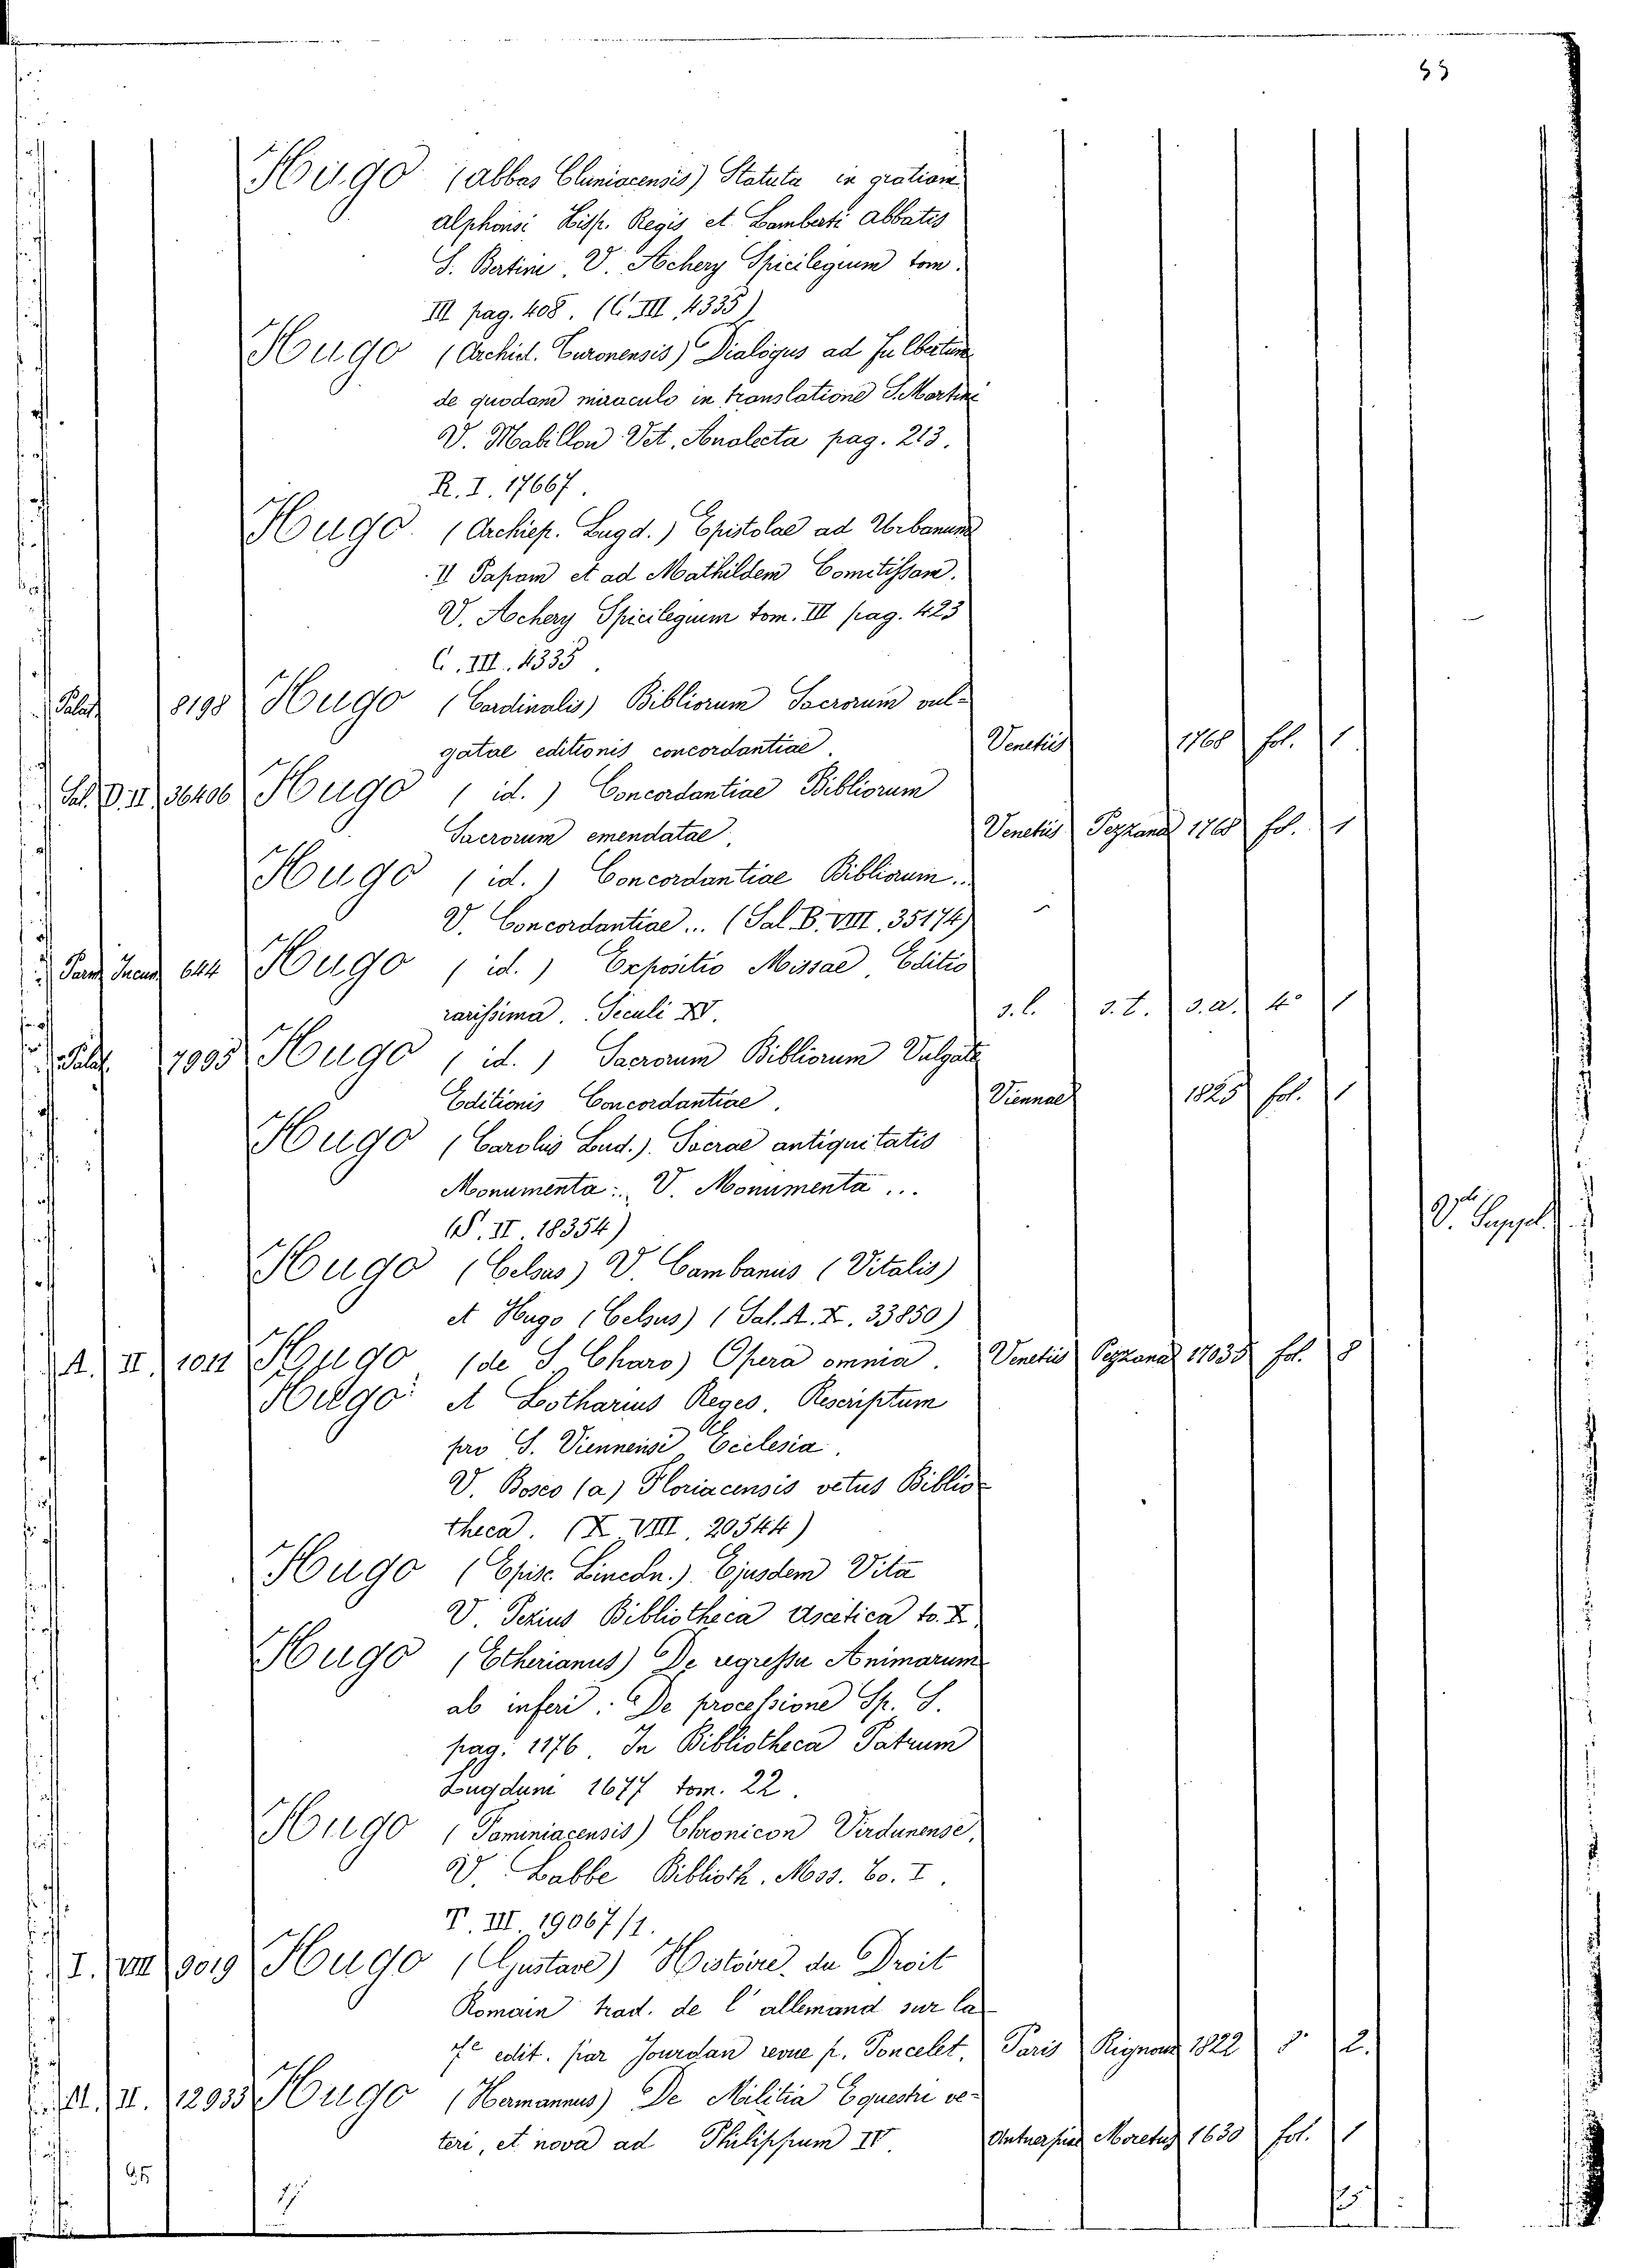 Hugo (abbas Cluniacensis) Statuta in gratiam
alphonsi Hisp. Regis et Lamberti abbatis
S. Bertini. V. Achery Spicilegium tom.
III pag. 408. (C. III. 4335)
Hugo (Archid. Turonensis) Dialogus ad Fulbertum
de quodam miraculo in translatione S. Martini
V. Mabillon Vet. Analecta pag. 213.
R. I. 17667.
Hugo (Archiep. Lugd.) Epistolae ad Urbanum
II Papam et ad Mathildem Comitissam.
V. Achery Spicilegium tom. III pag. 423
C. III. 4335.
Palat. 8198 Hugo (Cardinalis) Bibliorum Sacrorum vul-
gatae editionis concordantiae. Venetiis 1768 fol. 1
Sal. D. II 36406 Hugo (id.) Concordantiae Bibliorum
Sacrorum emendatae. Venetiis Pezzana 1768 fol. 1
Hugo (id.) Concordantiae Bibliorum..
V. Concordantiae... (Sal. B. VIII. 35174)
644 Hugo (id.) Expositio Missae, Editio
rarissima. Seculi XV. s.l. s.t. s.a. 4° 1
Palat. 7995 Hugo (id.) Sacrorum Bibliorum Vulgatae
Editionis Concordantiae. Viennae 1825 fol. 1
Hugo (Carolus Lud.) Sacrae antiquitatis
Monumenta.. V. Monumenta...
(S. II. 18354)
V. Suppl.
Hugo (Celsus) V. Cambanus (Vitalis)
et Hugo (Celsus) (Sal. A. X. 33850)
A. II. 1011 Hugo (de S. Charo) Opera omnia. Venetiis Pezzana 1703 fol. 8
Hugo et Lotharius Reges. Rescriptum
pro S. Viennensi Ecclesia.
V. Bosco (a) Floriacensis vetus Biblio-
theca. (X. VIII. 20544)
Hugo (Episc. Lincoln.) Ejusdem Vita
V. Pezius Bibliotheca Ascetica to. X.
Hugo (Etherianus) De regressu Animarum
ab inferi: De processione Sp. S.
pag. 1176. In Bibliotheca Patrum
Lugduni 1677 tom. 22.
Hugo (Flaminiacensis) Chronicon Virdunense,
V. Labbe Biblioth. Mss. to. I.
T. III. 19067/1.
I. VIII 9019 Hugo (Gustave) Histoire du Droit
Romain trad. de l'allemand sur la
7e edit. par Jourdan revue p. Poncelet. Paris Rignoux 1822 8° 2.
II. 12933 Hugo (Hermannus) De Militia Equestri ve-
teri, et nova ad Philippum IV. Antuerpiae Moretus 1630 fol. 1